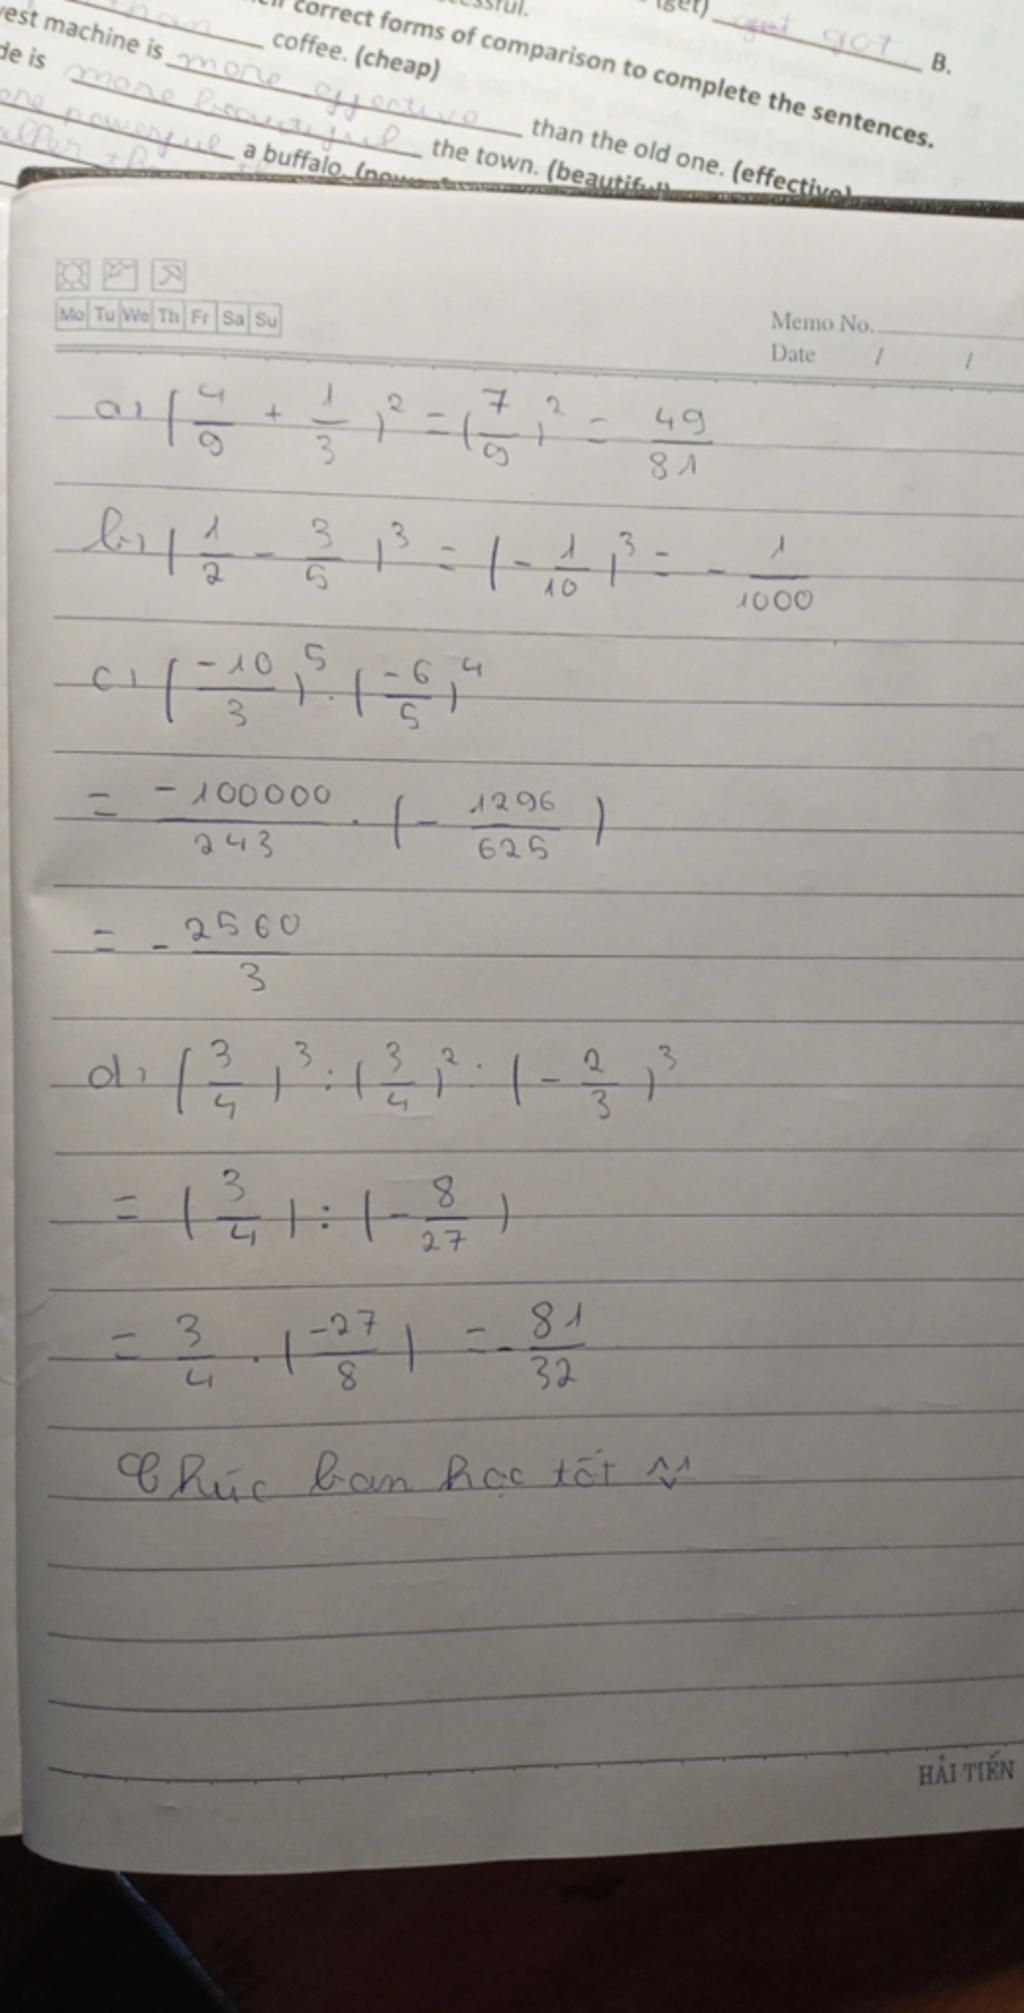 (get) got B.
correct forms of comparison to complete the sentences.
coffee. (cheap)
est machine is more effective than the old one. (effective)
de is more beautiful the town. (beautiful)
powerful a buffalo.
Mo Tu We Th Fr Sa Su
Memo No.
Date / /
a) (4/9 + 1/3)² = (7/9)² = 49/81
b) (1/2 - 3/5)³ = (-1/10)³ = -1/1000
c) (-10/3)⁵ . (-6/5)⁴
= -100000/243 . (-1296/625)
= -2560/3
d) (3/4)³ : (3/4)² : (-2/3)³
= (3/4) : (-8/27)
= 3/4 . (-27/8) = -81/32
Chúc bạn học tốt ^v^
HẢI TIẾN